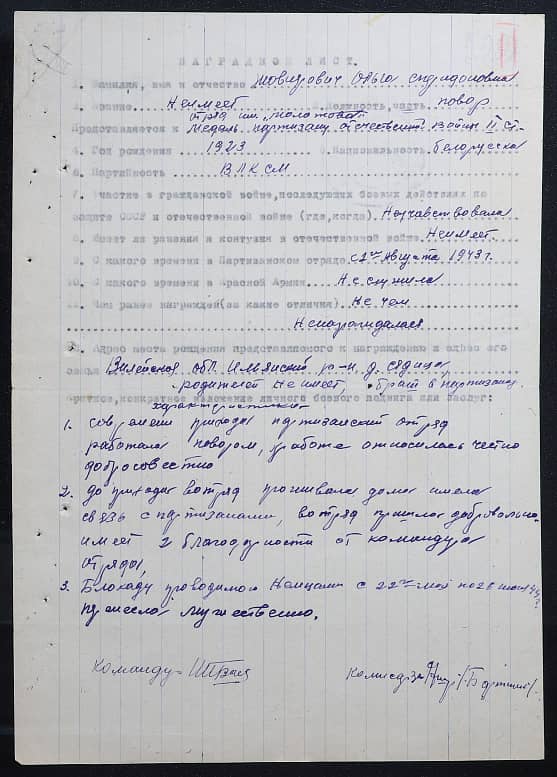 НАГРАДНОЙ ЛИСТ.
1. Фамилия, имя и отчество Ольга Спиридоновна
2. Звание Неимеет 3. Должность, часть повар
отряд им. "Молотова"
Представляется к Медаль партизану отечествен. войны II ст.
4. Год рождения 1923 5. Национальность белорусска
6. Партийность ВЛКСМ
7. Участие в гражданской войне, последующих боевых действиях по
защите СССР и отечественной войне (где, когда). Неучавствовала
8. Имеет ли ранения и контузии в отечественной войне. Неимеет.
9. С какого времени в Партизанском отряде с 2го Августа 1943 г.
10. С какого времени в Красной Армии Не служила
11. Чем ранее награжден (за какие отличия) Не чем
Ненаграждалася
Адрес места рождения представляемого к награждению и адрес его
семьи Вилейская обл. Илиянский р-н. д.
родителей Неимеет, брат в партизанах
Краткое, конкретное изложение личного боевого подвига или заслуг:
характеристика
1. со времени прихода партизанский отряд
работала поваром, к работе относилась честно
добросовестно
2. до прихода вотряд проживала дома имела
связь с партизанами, вотряд пришла добровольно
имеет 2 благодарности от командира
отряда,
3. Блокаду проводимою Немцами с 22го мая по 28
мужественно.
Командир
Комиссар